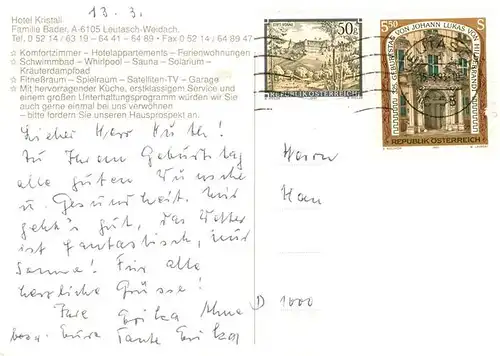 13. 3.
Hotel Kristall
Familie Bader, A-6105 Leutasch-Weidach.
Tel. 0 52 14 / 63 19 – 64 41 – 64 89 • Fax 0 52 14 / 64 89 47
☆ Komfortzimmer – Hotelappartements – Ferienwohnungen
☆ Schwimmbad – Whirlpool – Sauna – Solarium –
Kräuterdampfbad
☆ Fitneßraum – Spielraum – Satelliten-TV – Garage
☆ Mit hervorragender Küche, erstklassigem Service und
einem großen Unterhaltungsprogramm würden wir Sie
auch gerne einmal bei uns verwöhnen
– bitte fordern Sie unseren Hausprospekt an.
50g
REPUBLIK ÖSTERREICH
S 5.50 S
GEBURTSTAG VON JOHANN LUKAS VON HILDEBRANDT
REPUBLIK ÖSTERREICH
Lieber Herr
Zu Ihrem Geburtstag
alle guten Wünsche
u. Gesundheit. Mir
geht's gut, das Wetter
ist fantastisch, nur
Sonne! Für alle
herzliche Grüsse!
Ihre Erika
bzw. Eure Tante Erika
Herrn
Han
D 1000